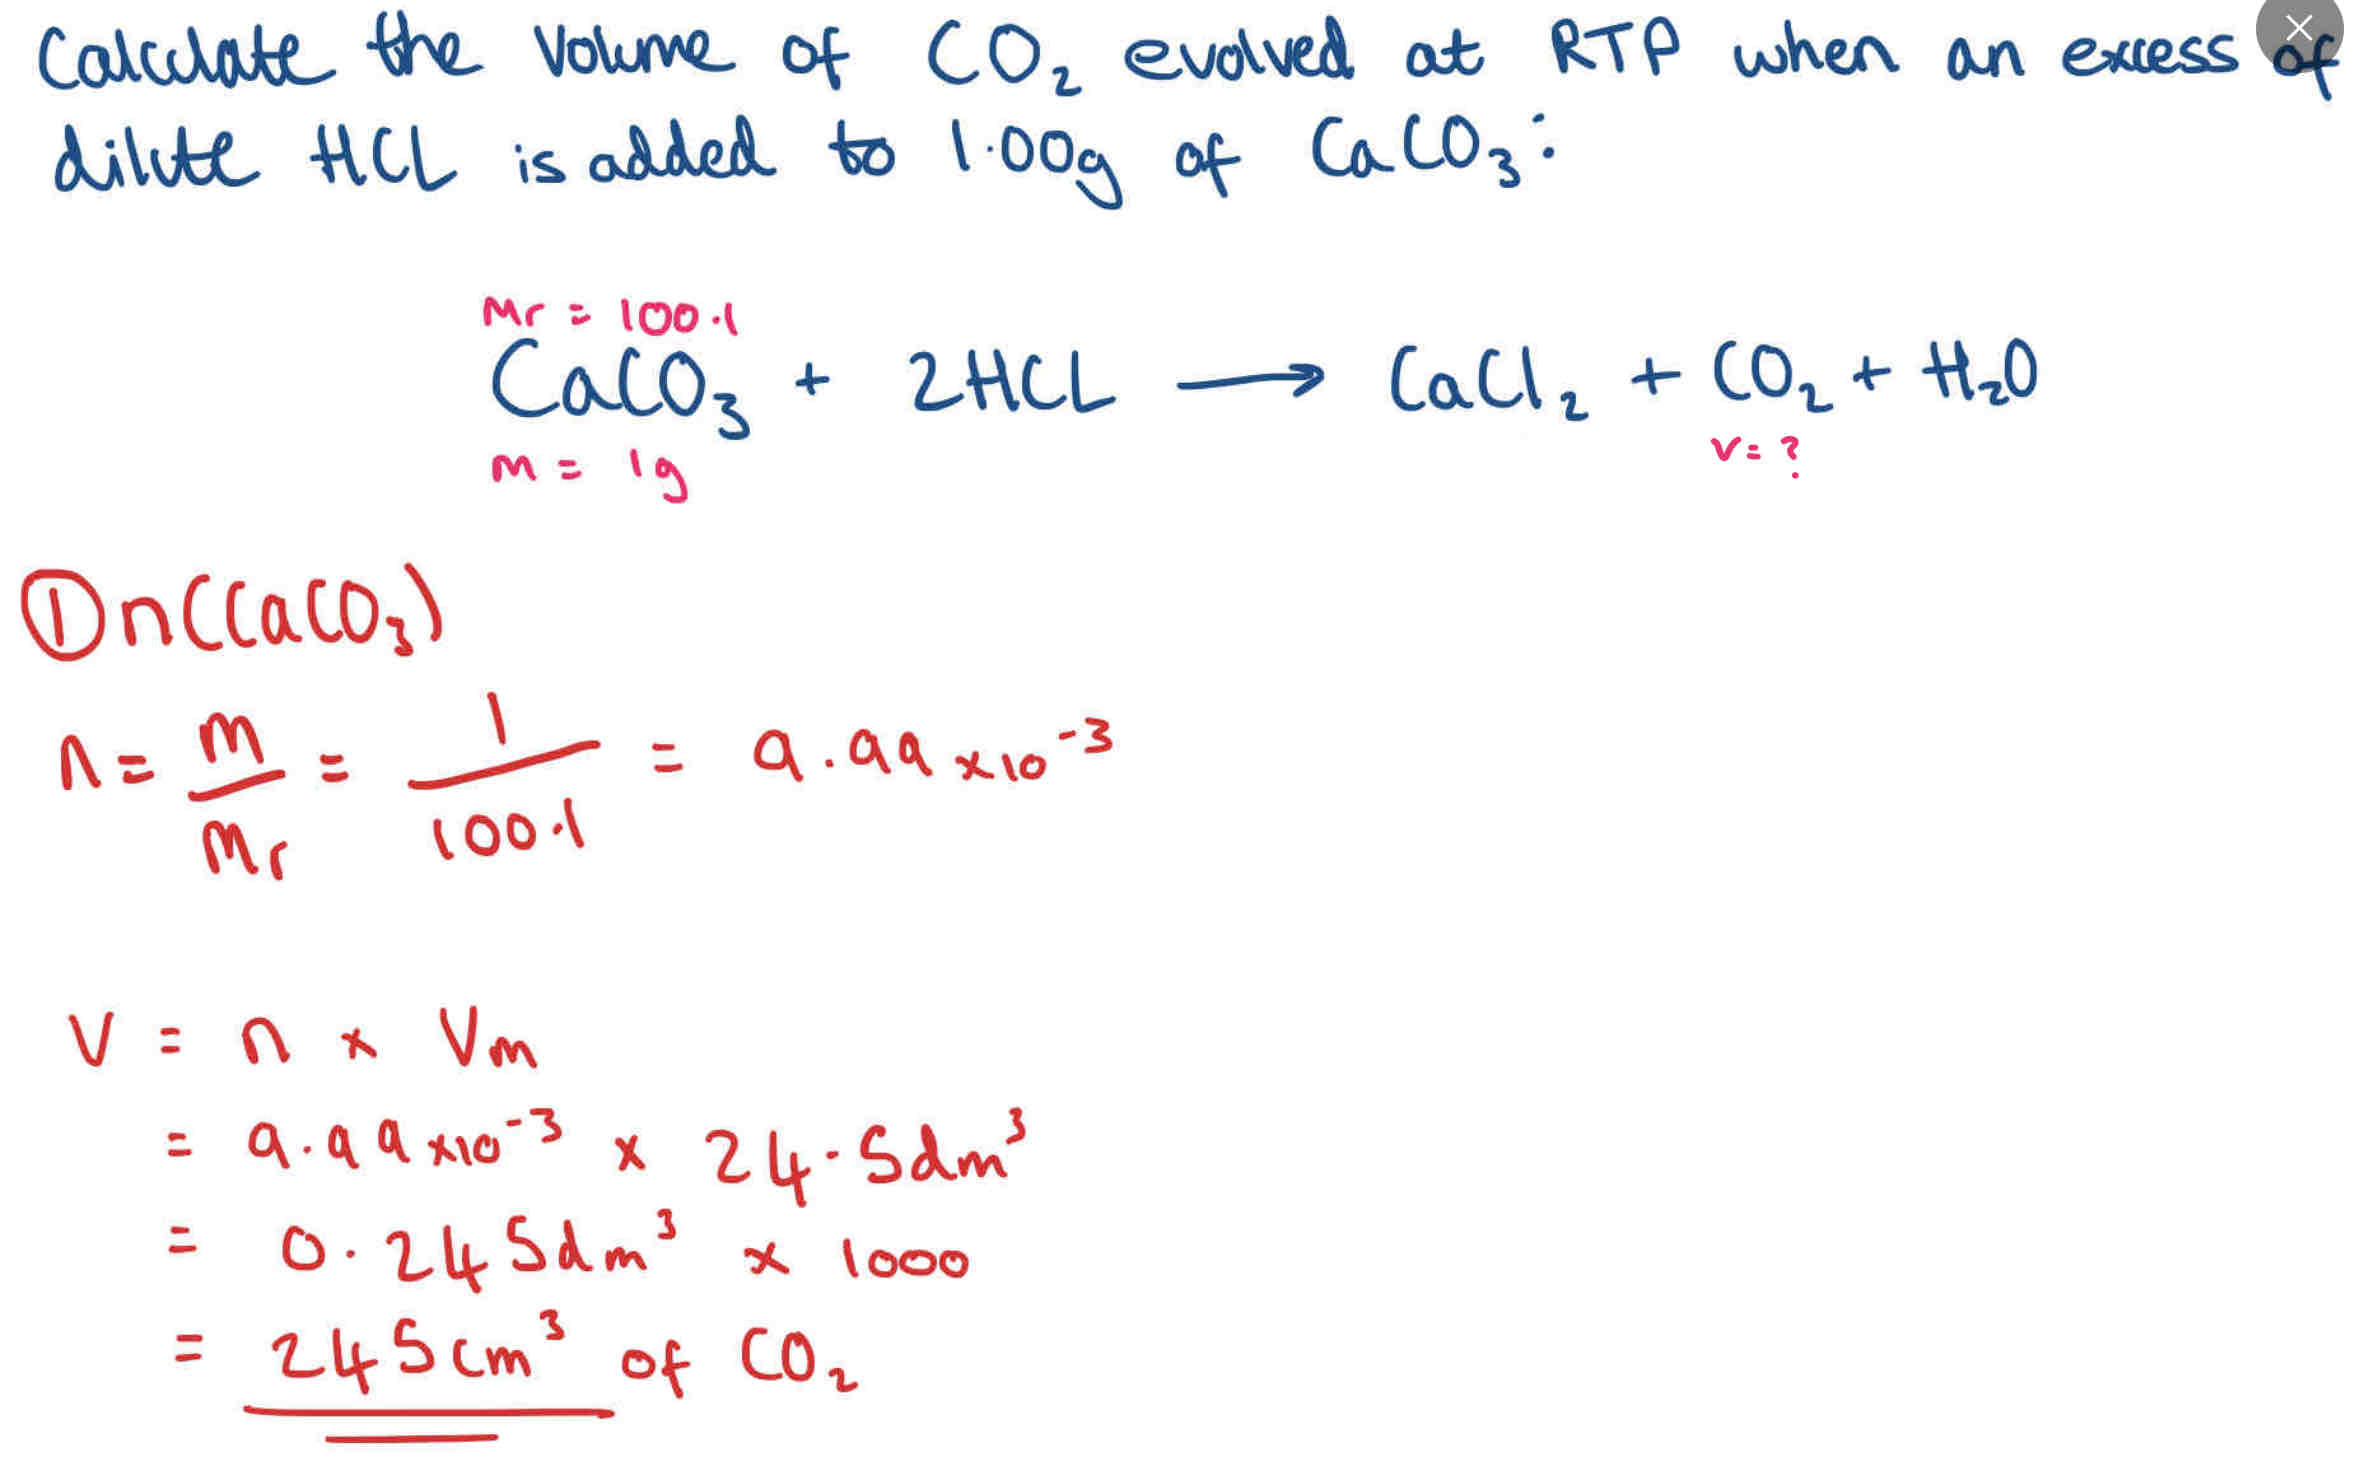 Calculate the volume of CO₂ evolved at RTP when an excess of
dilute HCL is added to 1.00g of CaCO₃:
Mr = 100.1
CaCO₃ + 2HCL ⟶ CaCl₂ + CO₂ + H₂O
m = 1g v = ?
① n(CaCO₃)
n = m/Mr = 1/100.1 = 9.99 x10⁻³
V = n x Vm
= 9.99 x10⁻³ x 24.5dm³
= 0.245dm³ x 1000
= 245cm³ of CO₂